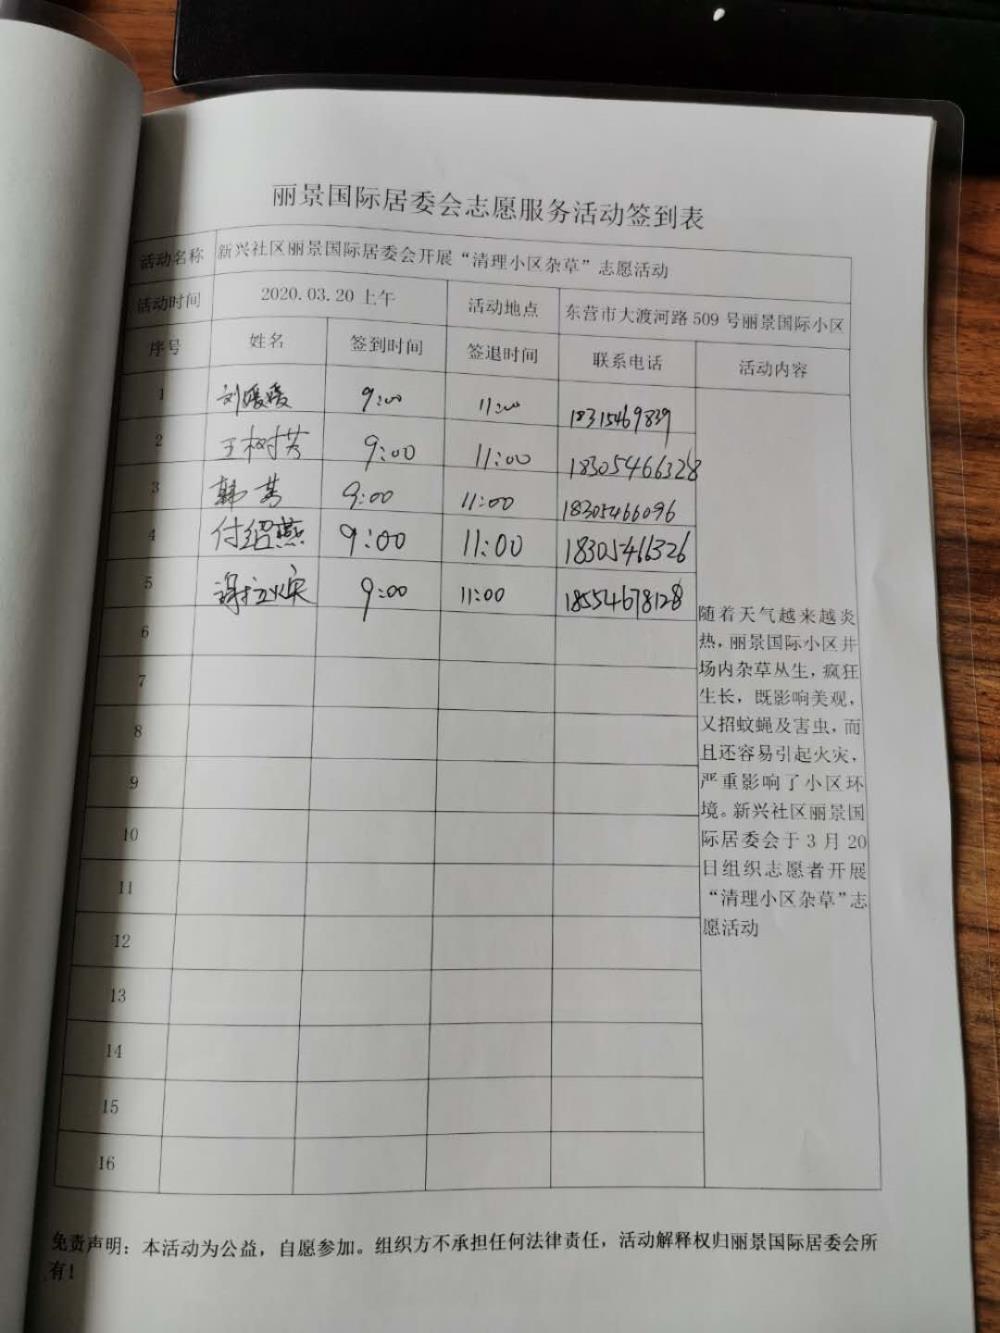 丽景国际居委会志愿服务活动签到表
活动名称 新兴社区丽景国际居委会开展“清理小区杂草”志愿活动
活动时间 2020.03.20上午 活动地点 东营市大渡河路509号丽景国际小区
序号 姓名 签到时间 签退时间 联系电话 活动内容
1 刘媛媛 9:00 11:00 18315469839
2 王树芳 9:00 11:00 18305466328
3 韩芳 9:00 11:00 18305466096
4 付绍燕 9:00 11:00 18305466326
5 9:00 11:00 18554678128
6
7
8
9
10
11
12
13
14
15
16
随着天气越来越炎
热,丽景国际小区井
场内杂草丛生,疯狂
生长,既影响美观,
又招蚊蝇及害虫,而
且还容易引起火灾,
严重影响了小区环
境。新兴社区丽景国
际居委会于3月20
日组织志愿者开展
“清理小区杂草”志
愿活动
免责声明:本活动为公益,自愿参加。组织方不承担任何法律责任,活动解释权归丽景国际居委会所
有!